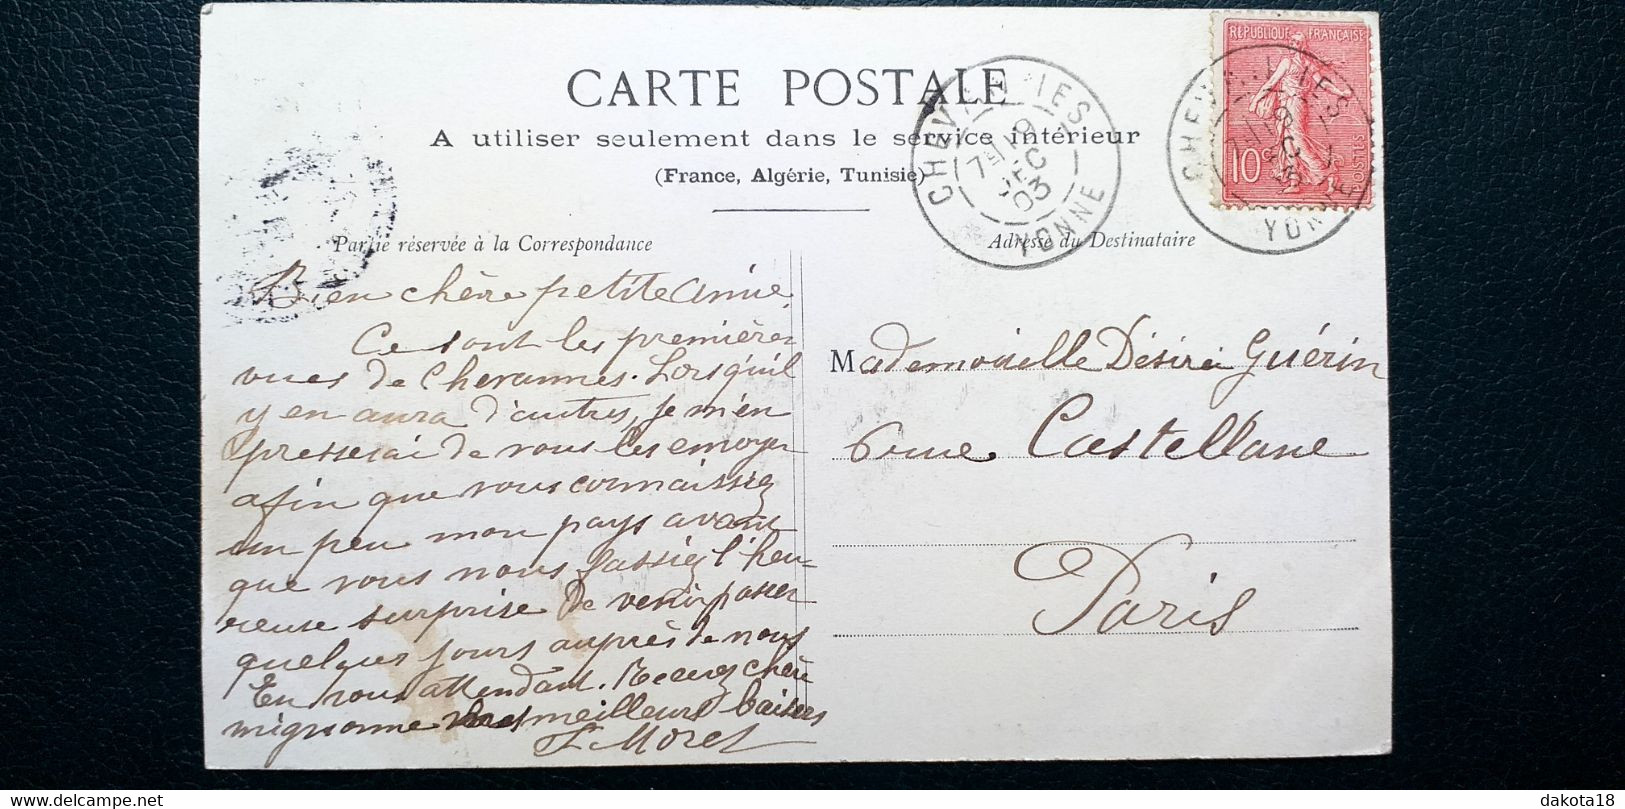 CARTE POSTALE
A utiliser seulement dans le service intérieur
(France, Algérie, Tunisie)
Partie réservée à la Correspondance
Bien chère petite amie.
Ce sont les premières
vues de Chevannes. Lorsqu'il
y en aura d'autres, je m'en
presserai de vous les envoyer
afin que vous connaissiez
un peu mon pays avant
que vous nous fassiez l'heu-
reuse surprise de venir passer
quelques jours auprès de nous
En vous attendant. Recevez chère
mignonne mes meilleurs baisers
L. Moret
Adresse du Destinataire
Mademoiselle Désirée Guérin
6 rue Castellane
Paris
CHEV IES
7 19
DEC
03
YONNE
REPUBLIQUE FRANÇAISE
10c
POSTES
CHEV IES
YONNE
dakota18